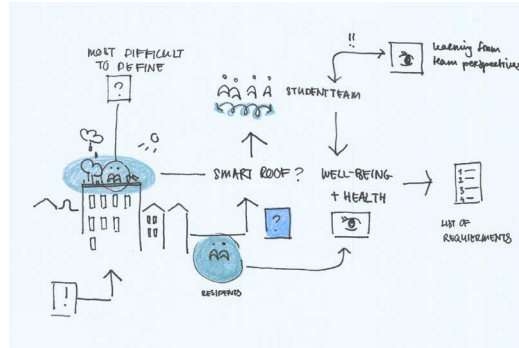 MOST DIFFICULT
TO DEFINE
?
!!
Learning from
team perspectives
STUDENT TEAM
SMART ROOF?
WELL-BEING
+ HEALTH
?
1
2
3
4
LIST OF
REQUIERMENTS
RESIDENTS
!